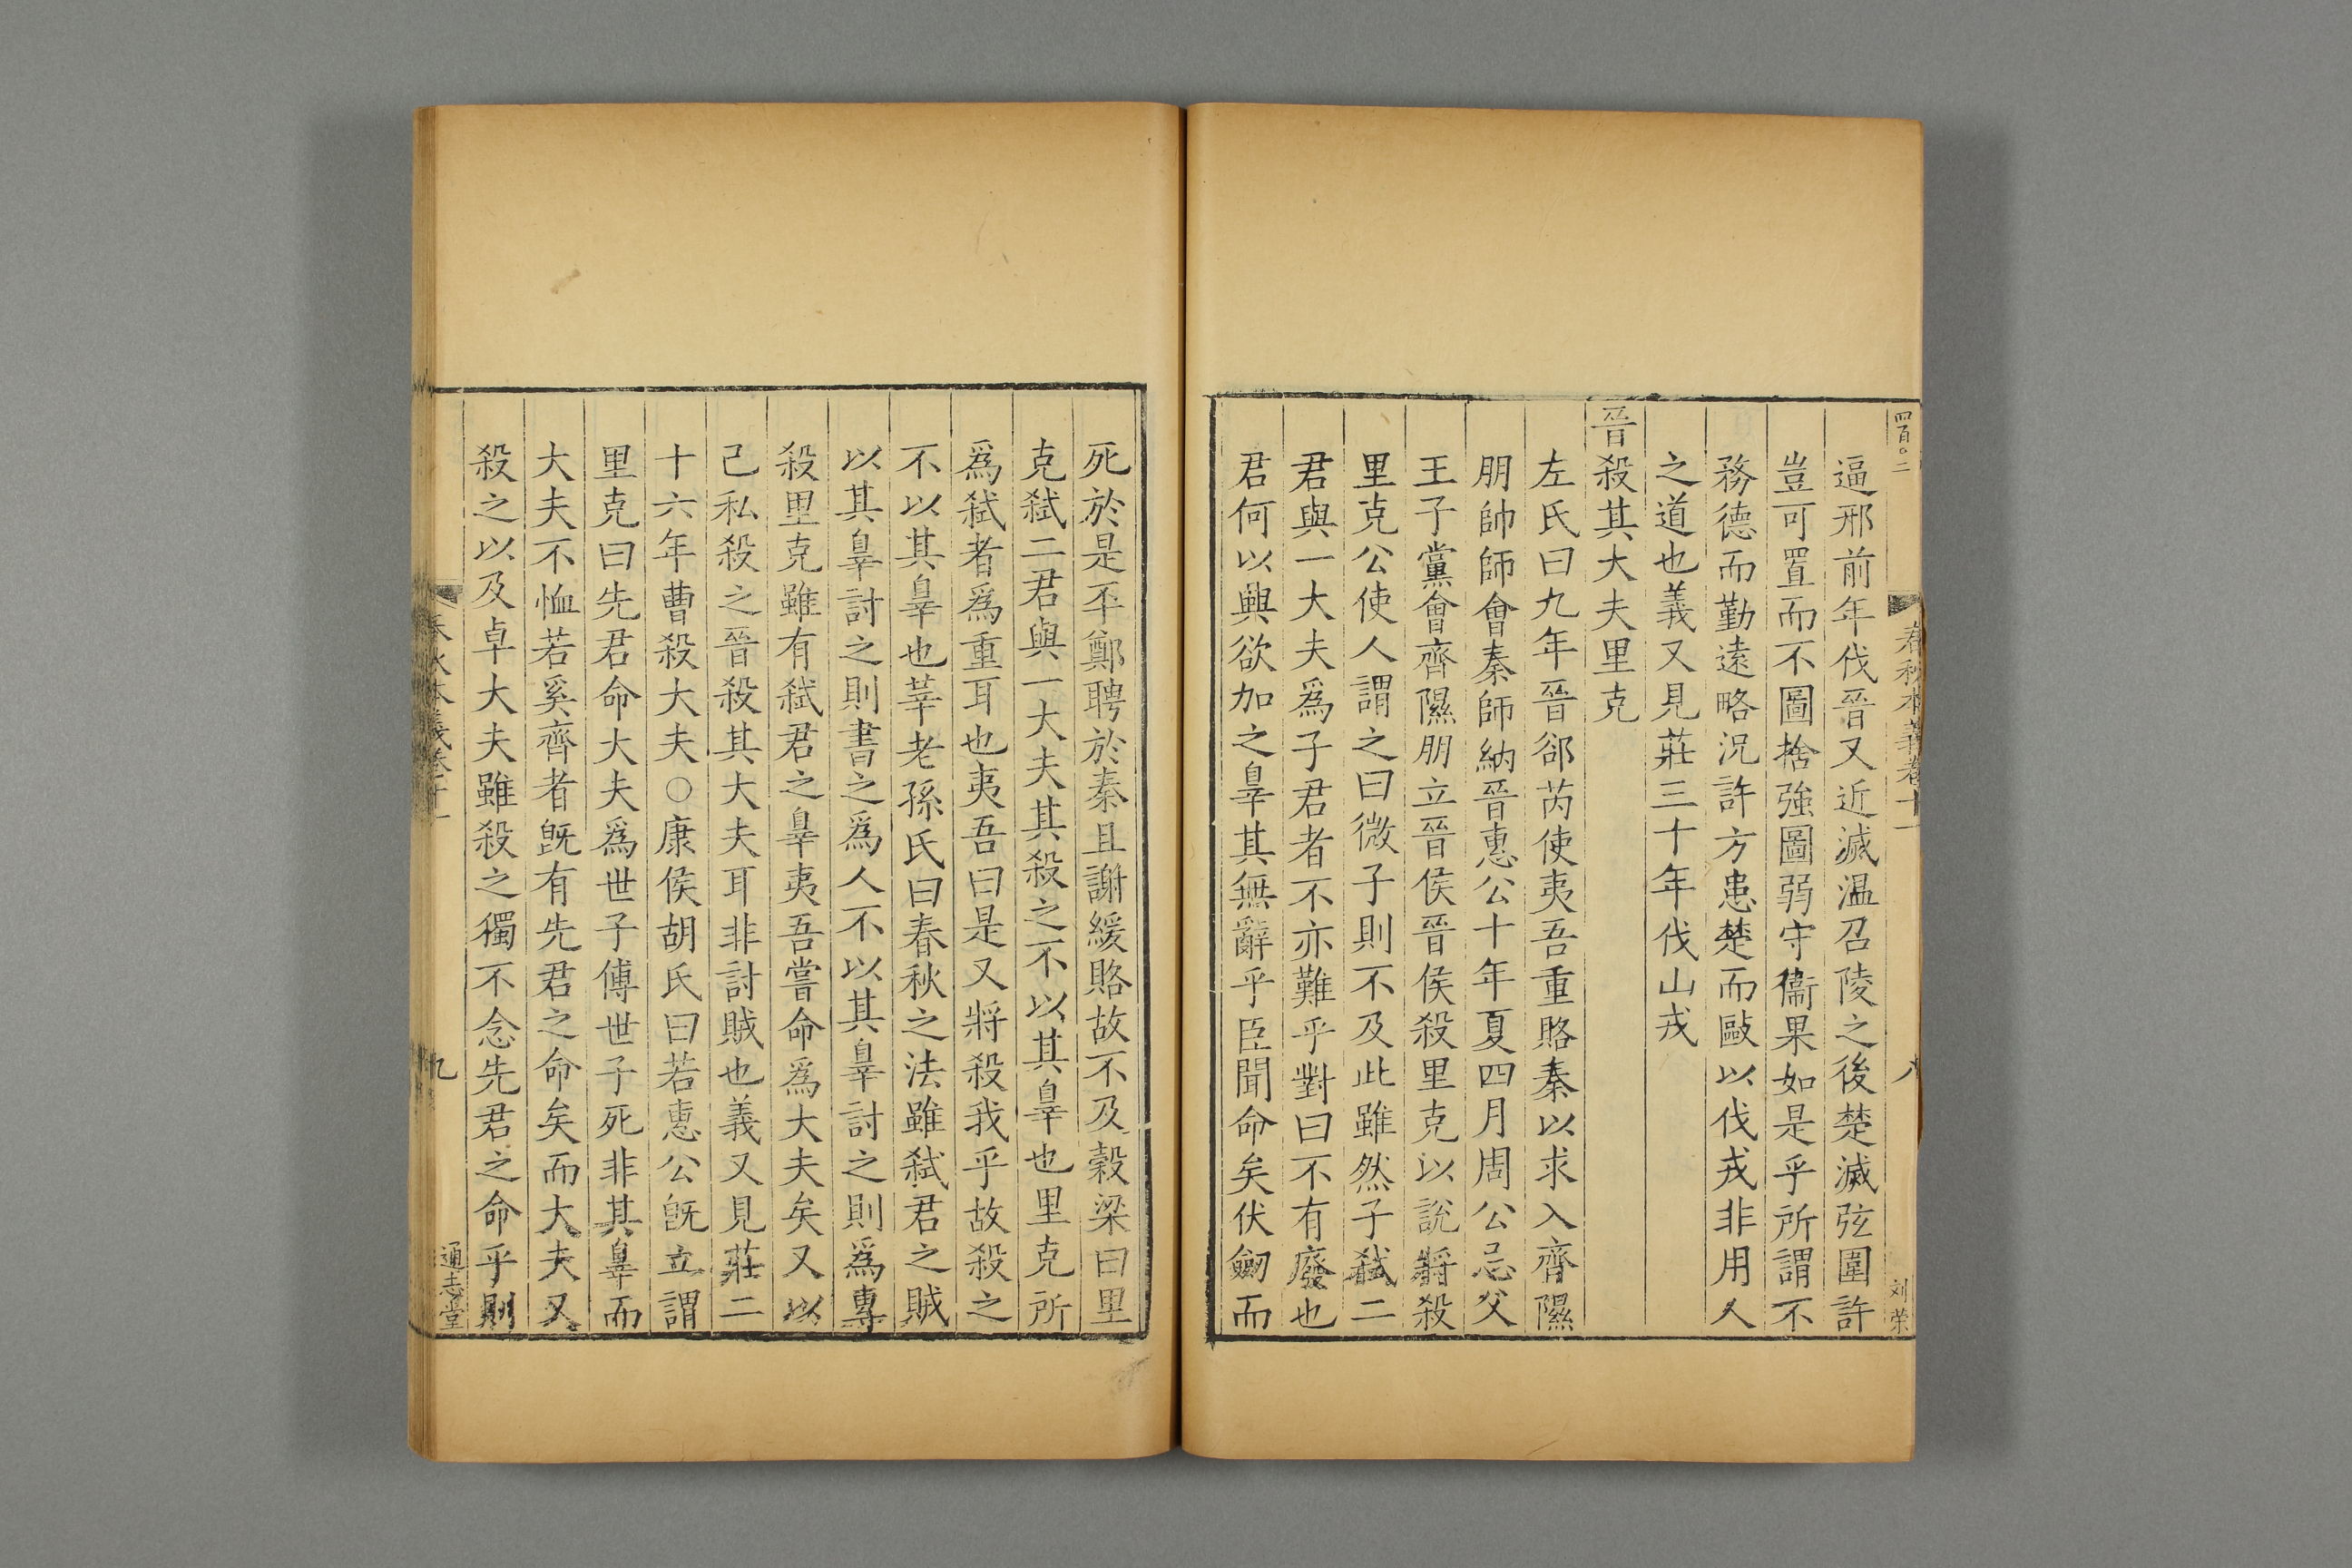 四百〇二
春秋本義卷十一
八
刘荣
逼邢前年伐晉又近滅温召陵之後楚滅弦圍許
豈可置而不圖捨強圖弱守衞果如是乎所謂不
務德而勤遠略況許方患楚而敺以伐戎非用人
之道也義又見莊三十年伐山戎
晉殺其大夫里克
左氏曰九年晉郤芮使夷吾重賂秦以求入齊隰
朋帥師會秦師納晉惠公十年夏四月周公忌父
王子黨會齊隰朋立晉侯晉侯殺里克以說將殺
里克公使人謂之曰微子則不及此雖然子弑二
君與一大夫爲子君者不亦難乎對曰不有廢也
君何以興欲加之辠其無辭乎臣聞命矣伏劒而
死於是丕鄭聘於秦且謝緩賂故不及穀梁曰里
克弑二君與一大夫其殺之不以其辠也里克所
爲弑者爲重耳也夷吾曰是又將殺我乎故殺之
不以其辠也莘老孫氏曰春秋之法雖弑君之賊
以其辠討之則書之爲人不以其辠討之則爲專
殺里克雖有弑君之辠夷吾嘗命爲大夫矣又以
己私殺之晉殺其大夫耳非討賊也義又見莊二
十六年曹殺大夫○康侯胡氏曰若惠公旣立謂
里克曰先君命大夫爲世子傅世子死非其辠而
大夫不恤若奚齊者旣有先君之命矣而大夫又
殺之以及卓大夫雖殺之獨不念先君之命乎則
春秋本義卷十一
九
通志堂